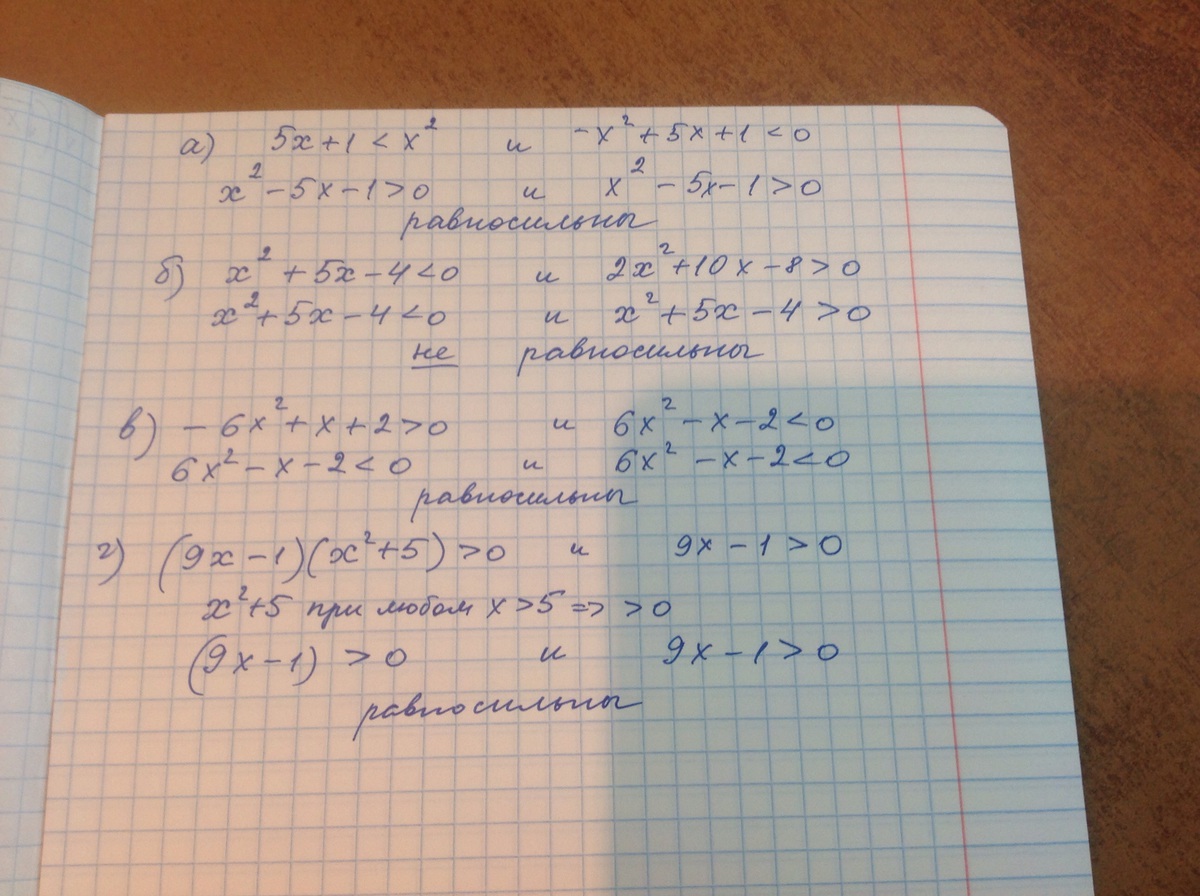 а) 5x+1 < x² и -x²+5x+1 < 0
x²-5x-1>0 и x²-5x-1>0
равносильны
б) x²+5x-4<0 и 2x²+10x-8>0
x²+5x-4<0 и x²+5x-4>0
не равносильны
в) -6x²+x+2>0 и 6x²-x-2<0
6x²-x-2<0 и 6x²-x-2<0
равносильны
г) (9x-1)(x²+5)>0 и 9x-1>0
x²+5 при любом x>5 => >0
(9x-1) >0 и 9x-1>0
равносильны